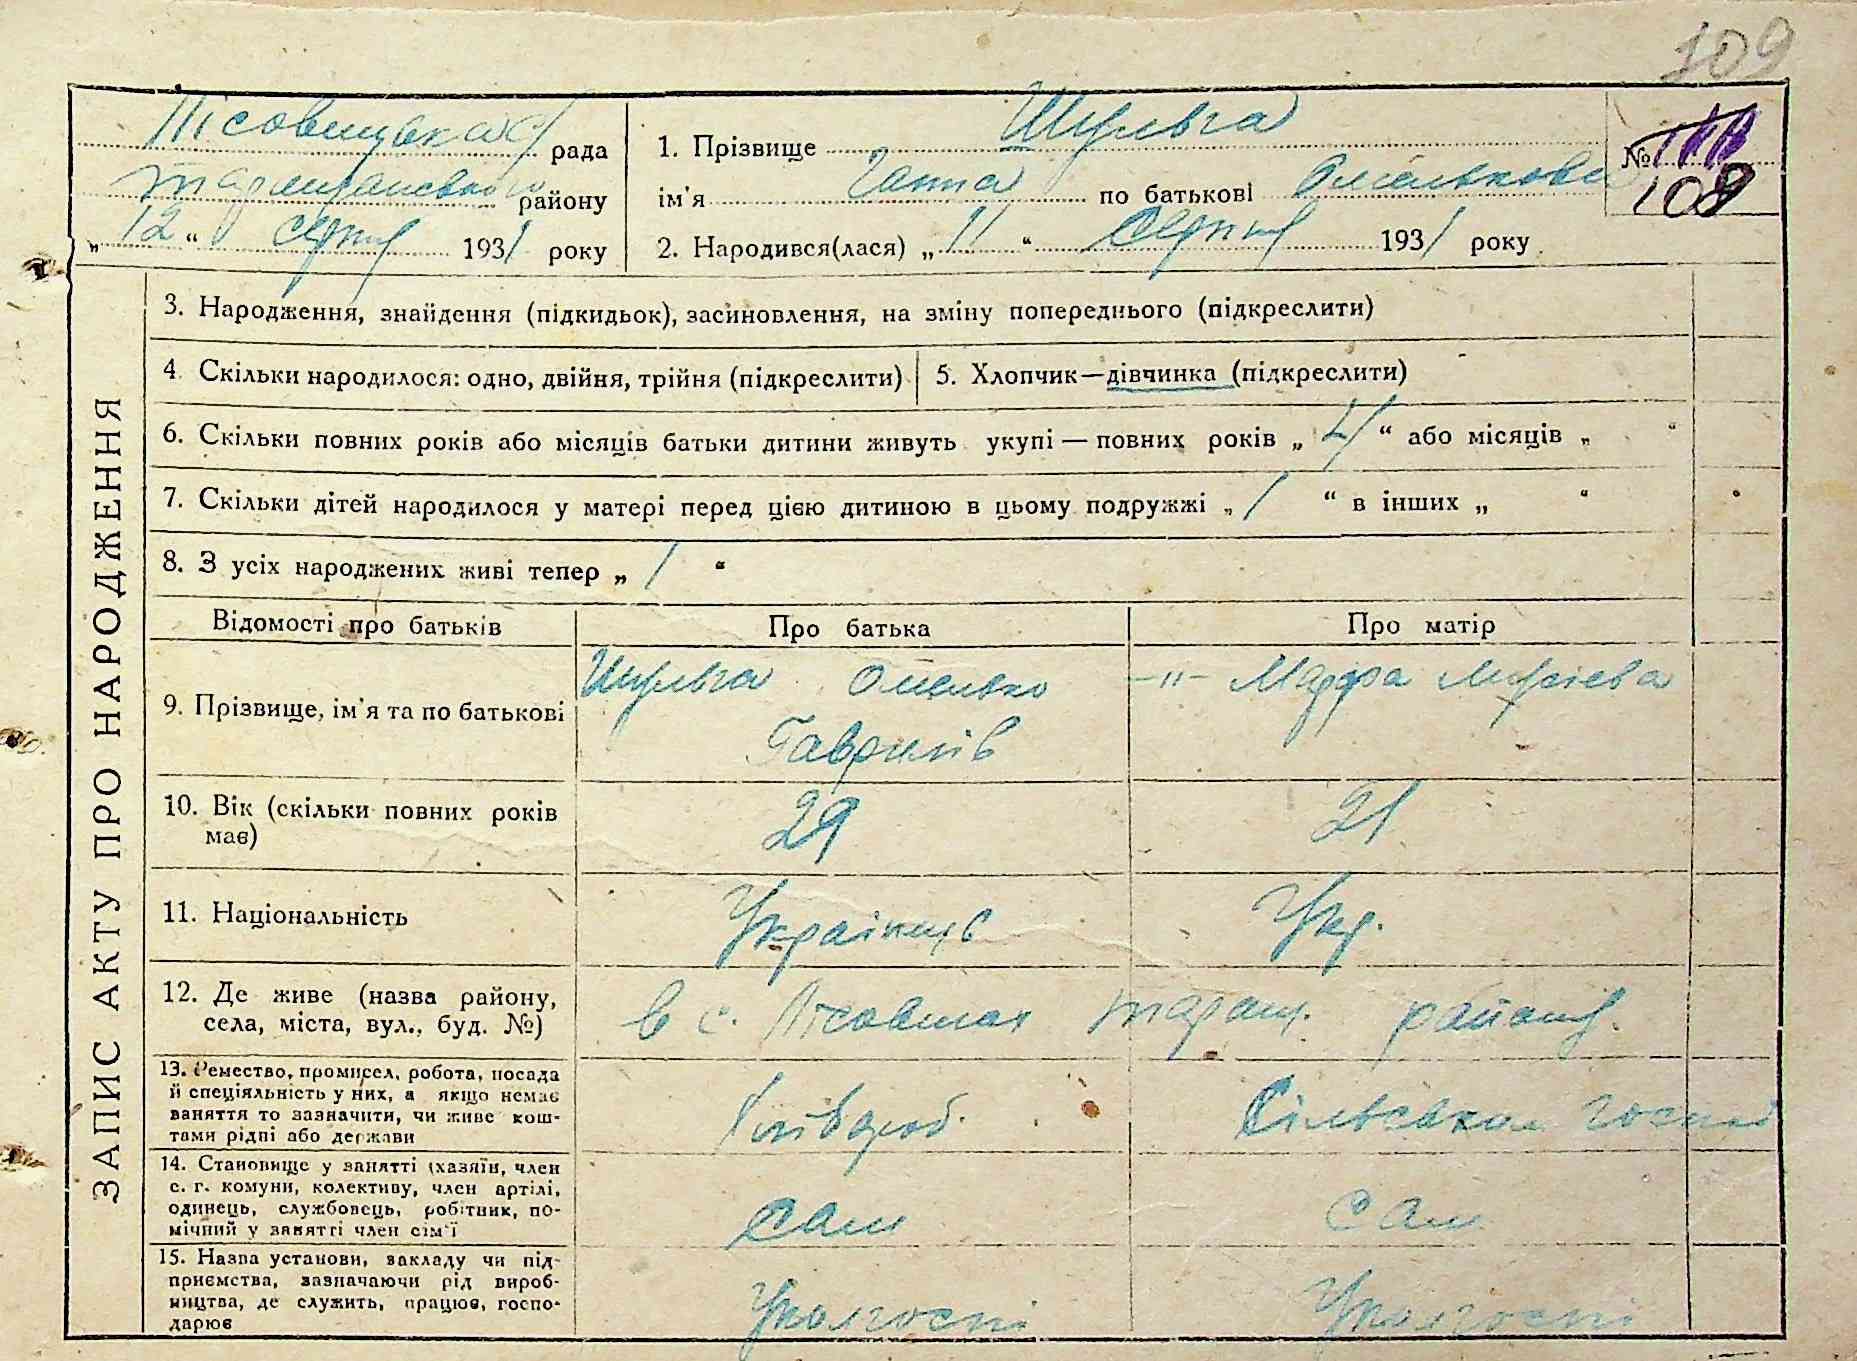 109
Лісовицька с/ рада
таращанського району
„ 12 “ серпня 1931 року
1. Прізвище Шульга
ім'я Ганна по батькові Омелькова
2. Народився(лася) „ 11 “ Серпня 1931 року
№
108
ЗАПИС АКТУ ПРО НАРОДЖЕННЯ
3. Народження, знайдення (підкидьок), засиновлення, на зміну попереднього (підкреслити)
4. Скільки народилося: одно, двійня, трійня (підкреслити)
5. Хлопчик—дівчинка (підкреслити)
6. Скільки повних років або місяців батьки дитини живуть укупі — повних років „ 4 “ або місяців „ “
7. Скільки дітей народилося у матері перед цією дитиною в цьому подружжі „ 1 “ в інших „ “
8. З усіх народжених живі тепер „ 1 “
Відомості про батьків Про батька Про матір
9. Прізвище, ім'я та по батькові
Шульга Омелько
Гаврилів
—"— Марфа
10. Вік (скільки повних років
має)
29
21
11. Національність
Українець
Укр.
12. Де живе (назва району,
села, міста, вул., буд. №)
в с. Лісовичах таращ. району.
13. Ремество, промисел, робота, посада
й спеціяльність у них, а якщо немає
заняття то зазначити, чи живе кош-
тами рідні або держави
Хлібороб.
Сільська госпо
14. Становище у занятті (хазяїн, член
с. г. комуни, колективу, член артілі,
одинець, службовець, робітник, по-
мічний у занятті член сім'ї
Сам
Сам
15. Назва установи, закладу чи під-
приємства, зазначаючи рід вироб-
ництва, де служить, працює, госпо-
дарює
Уколгоспі
Уколгоспі